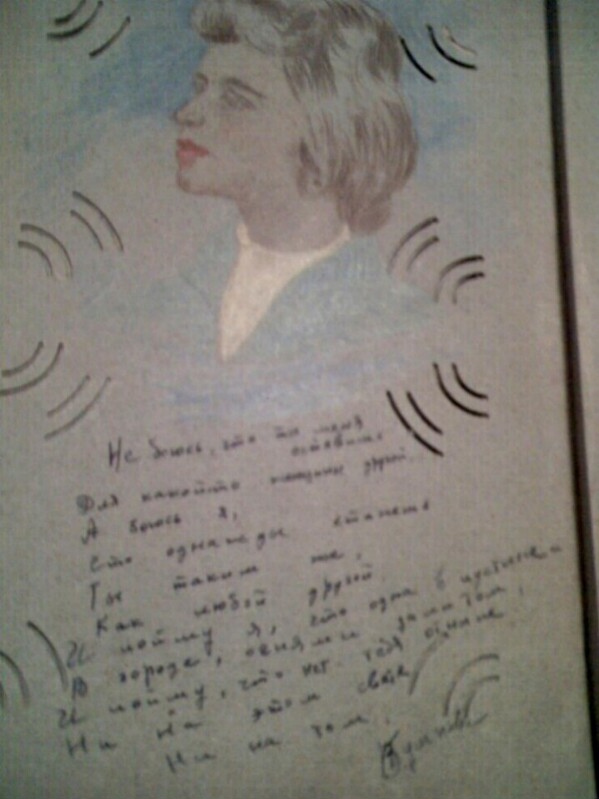 Не боюсь, что ты меня
оставишь,
Для какойто женщины другой.
А боюсь я,
Что однажды станешь
Ты таким же,
Как любой другой.
И пойму я, что одна в пустыне –
В городе, огнями залитом,
И пойму, что нет тебя отныне
Ни на этом свете
Ни на том.